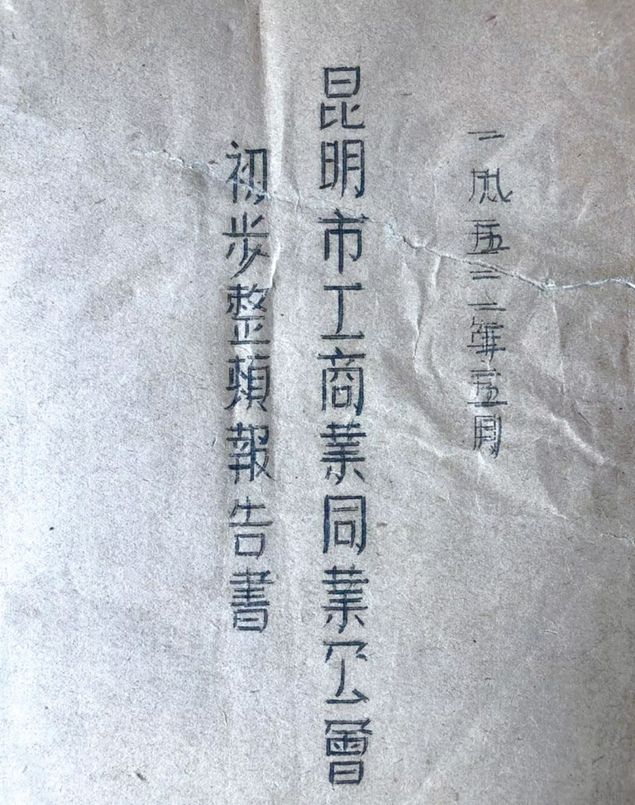 一九五二年五月
昆明市工商業同業公會
初步整頓報告書